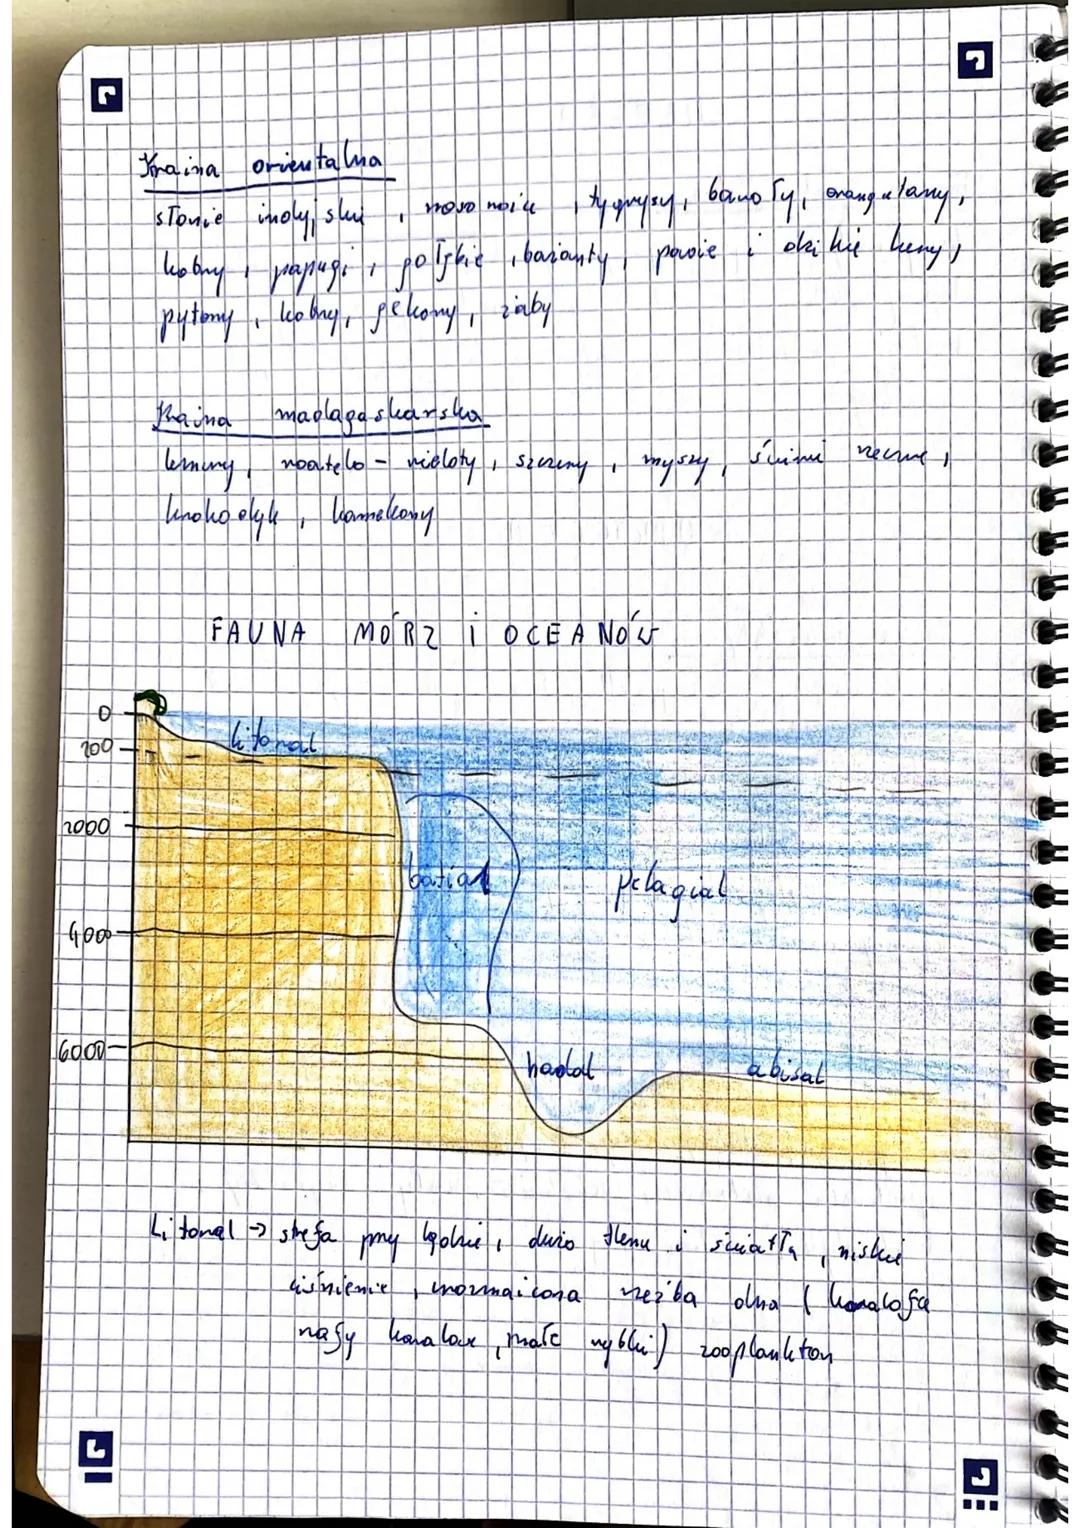 Kraina orientalna
słonie indyjskie, nosorożce, tygrysy, banoty, orangutany,
kobry, papugi, połykie, bażanty, pawie i dzikie kury,
pytony, kobry, gekony, żaby
Kraina madagaskarska
lemury, nietoty, szczury, myszy, świnie rzeczne,
krokodyle, kameleony
FAUNA MÓRZ i OCEANÓW
0
200
litoral
2000
batial
pelagial
4000
6000
hadal
abisal
Litoral → strefa przy lądzie, dużo tlenu i światła, niskie
ciśnienie, urozmaicona rzeźba dna (
rafy koralowe, małe rybki) zooplankton